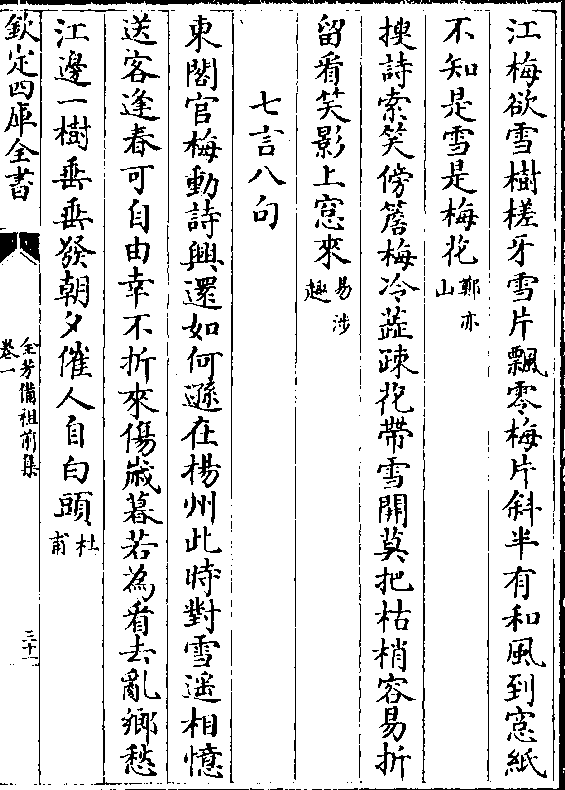 江梅欲雪樹槎牙雪片飄零梅片斜半有和風到窓紙
不知是雪是梅花鄭亦山
搜詩索笑傍簷梅冷蘂疎花帶雪開莫把枯梢容易折
留看笑影上窓來易涉趣
七言八句
東閣官梅動詩興還如何遜在楊州此時對雪遥相憶
送客逢春可自由幸不折來傷歲暮若為看去亂鄉愁
江邊一樹垂垂發朝夕催人自白頭杜甫
欽定四庫全書
全芳備祖前集
卷一
三十一